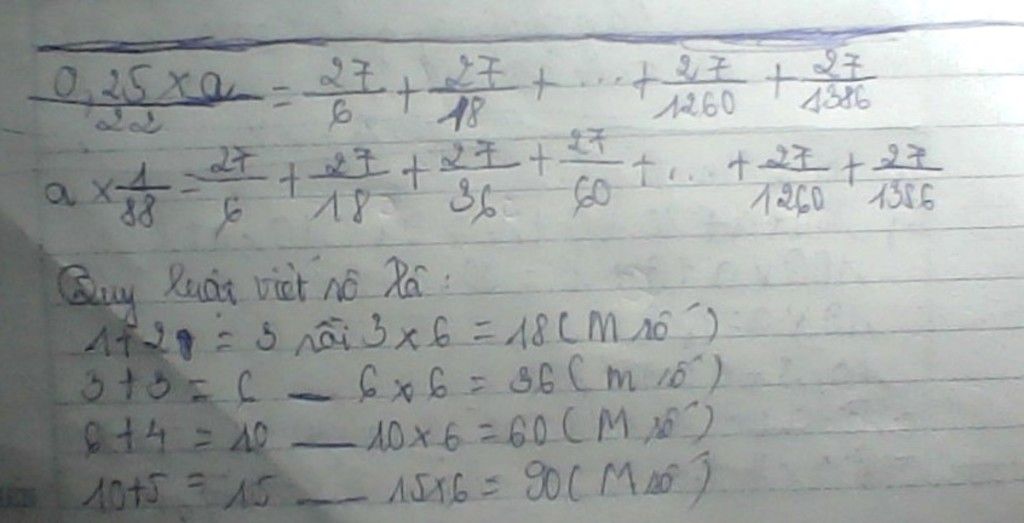 0,25 x a / 22 = 27/6 + 27/18 + ... + 27/1260 + 27/1386
a x 1/88 = 27/6 + 27/18 + 27/36 + 27/60 + ... + 27/1260 + 27/1386
Quy luật viết số là:
1+2 = 3 rồi 3 x 6 = 18 (M số)
3 + 3 = 6 — 6 x 6 = 36 (M số)
6 + 4 = 10 — 10 x 6 = 60 (M số)
10+5 = 15 — 15x6 = 90 (M số)